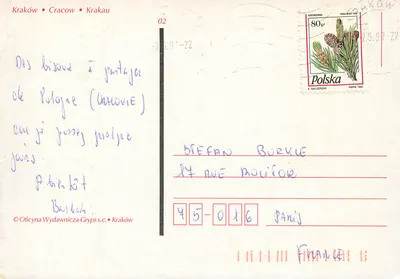 Kraków • Cracow • Krakau
02
80gr
Polska
Des bisous à partager
de Pologne (CRACOVIE)
où je passe quelques
jours.
A bientôt
© Oficyna Wydawnicza Gryps s.c. • Kraków
STEFAN BURKLE
17 RUE MOLITOR
75-016 PARIS
FRANCE